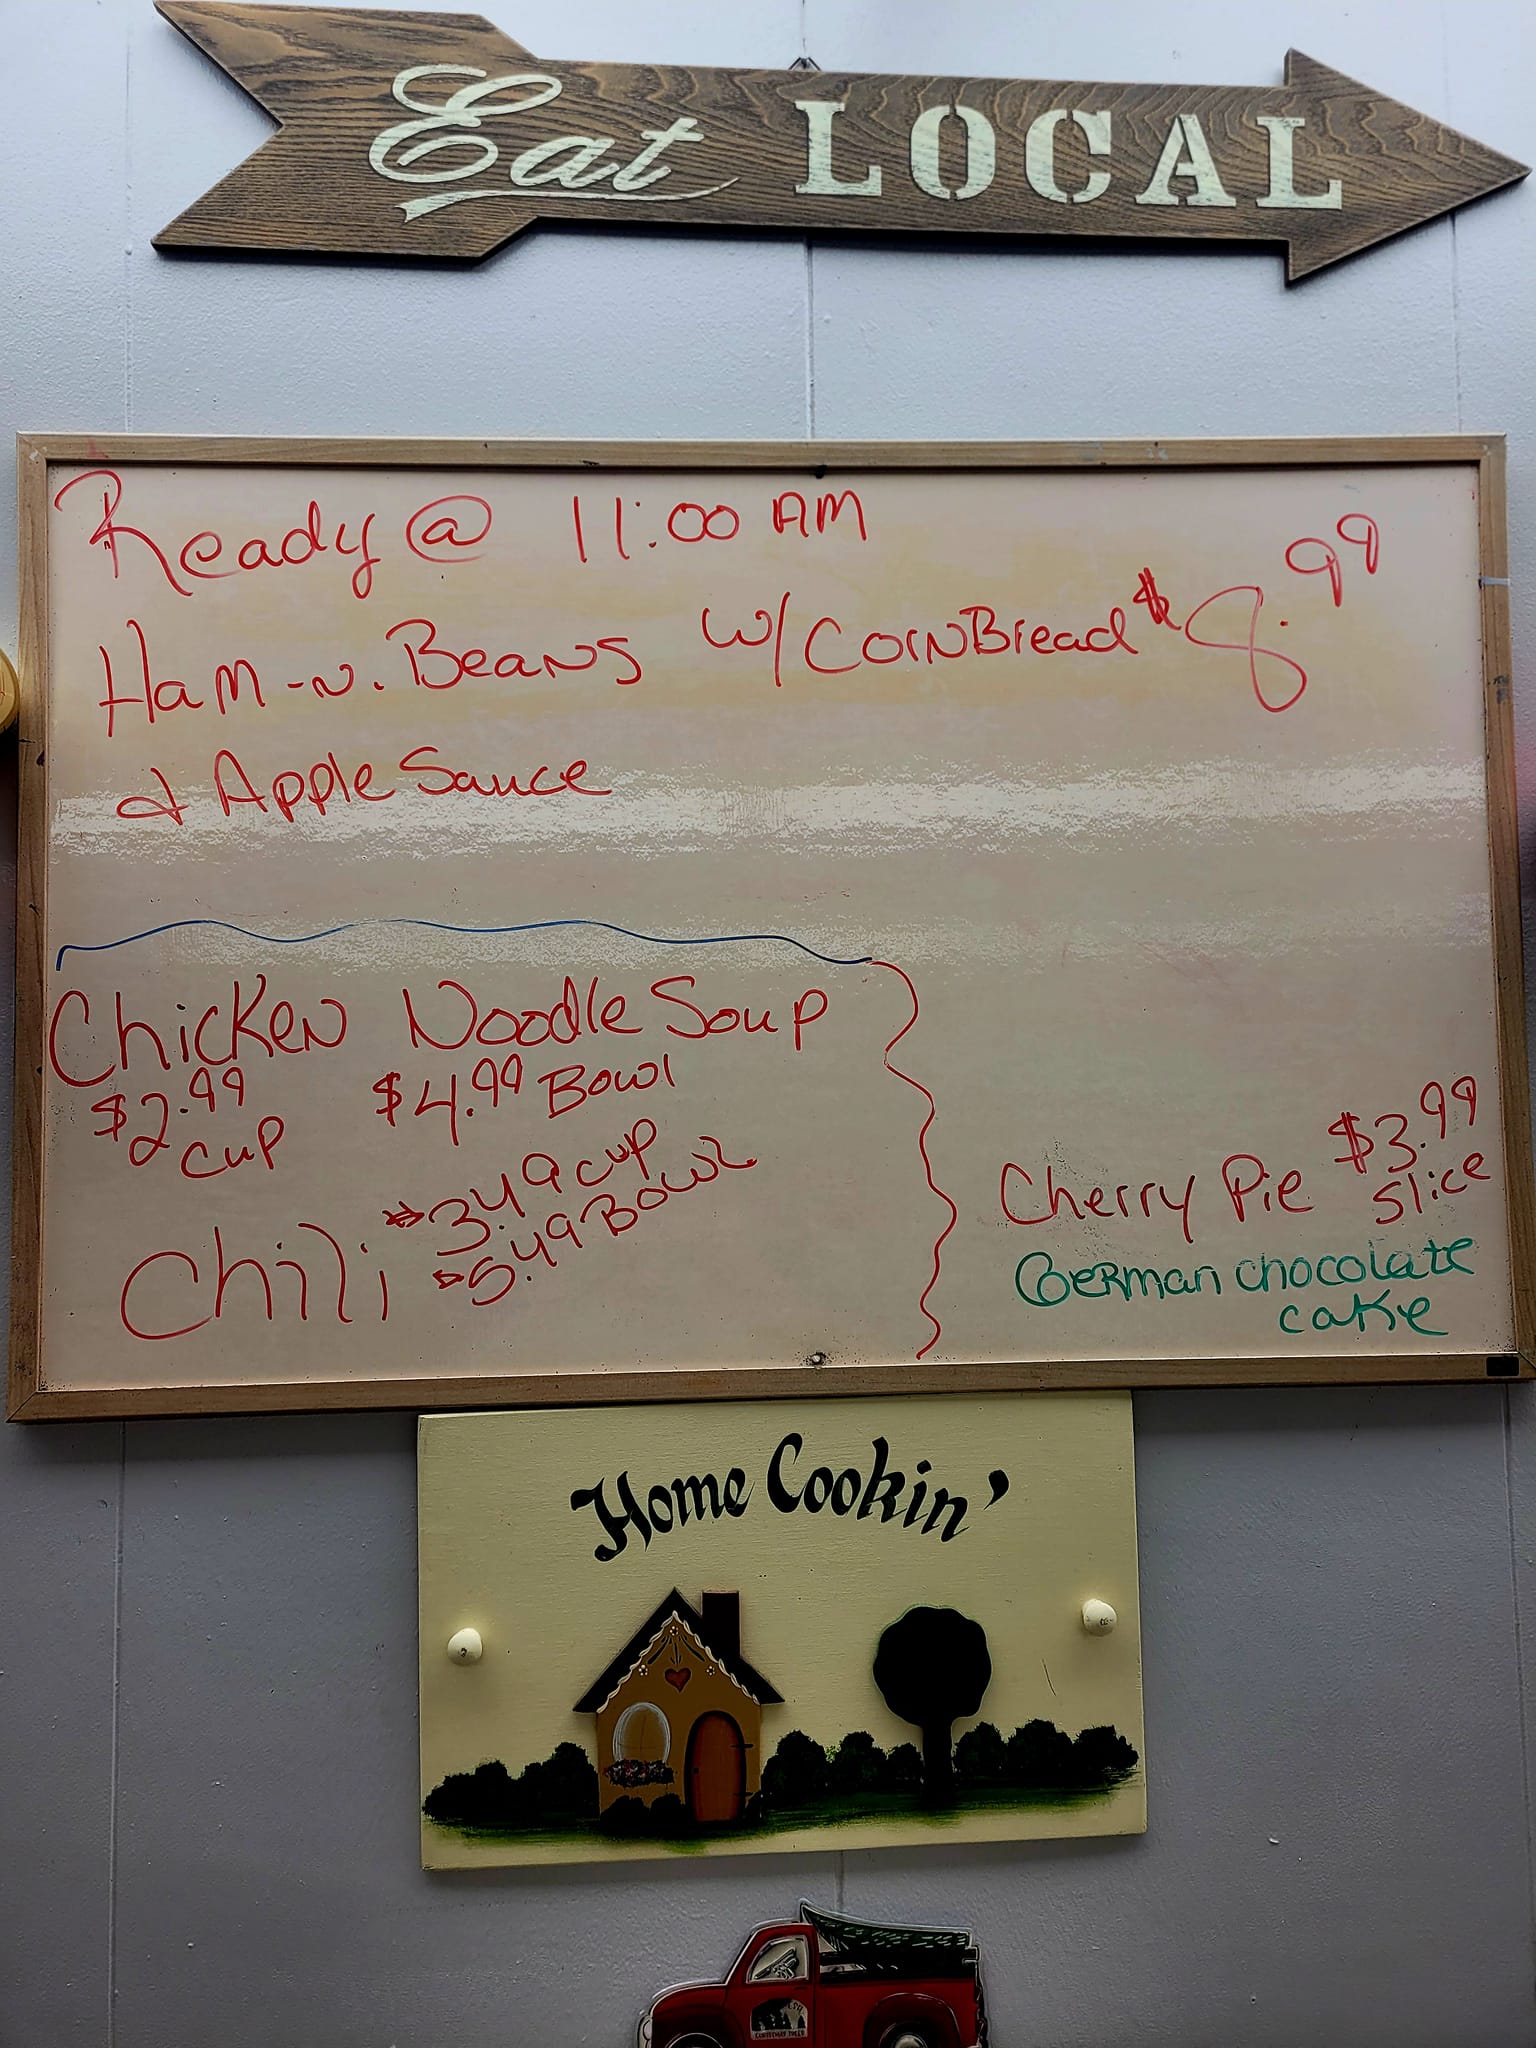 Eat LOCAL
Ready @ 11:00 AM
Ham-n. Beans w/ CornBread $8.99
& Apple Sauce
Chicken Noodle Soup
$2.99 cup $4.99 Bowl
Chili $3.49 cup
$5.49 Bowl
Cherry Pie $3.99 Slice
German chocolate
cake
Home Cookin'